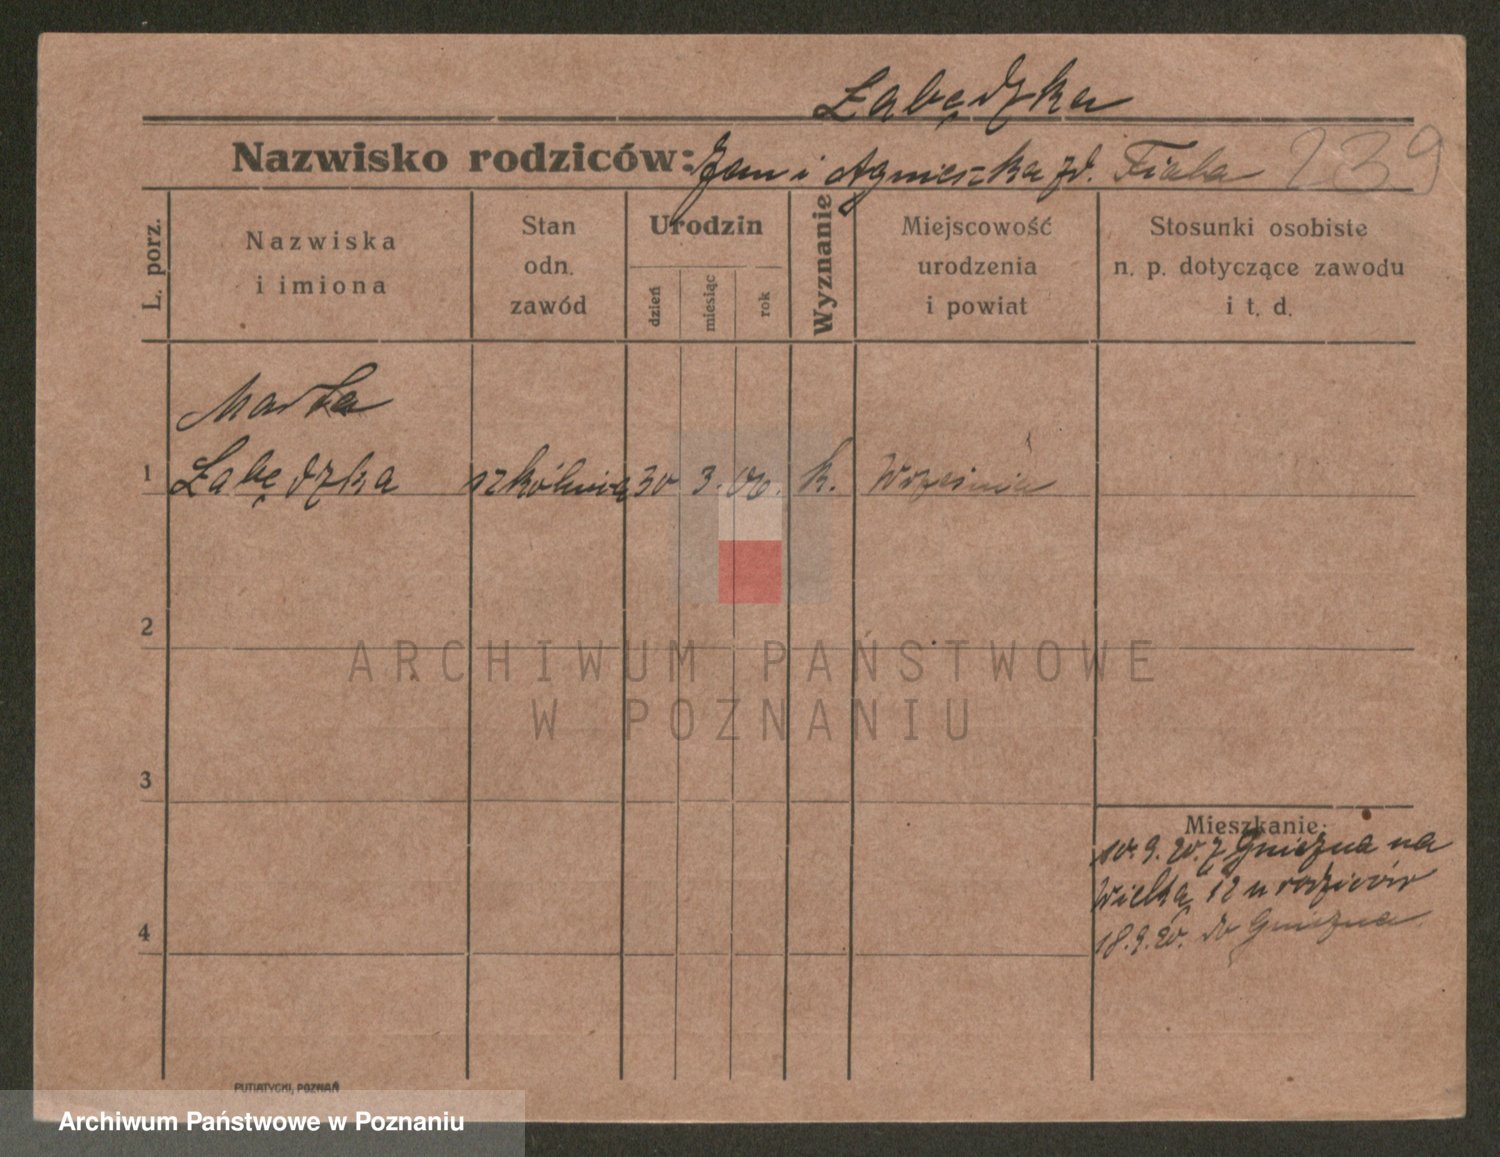 Łabędzka
Nazwisko rodziców: Jan i Agnieszka zd. Fiala 239
L. porz.
Nazwiska
i imiona
Stan
odn.
zawód
Urodzin
dzień
miesiąc
rok
Wyznanie
Miejscowość
urodzenia
i powiat
Stosunki osobiste
n. p. dotyczące zawodu
i t. d.
Marta
1 Łabędzka 30 3. 00. k. Września
2
ARCHIWUM PAŃSTWOWE
W POZNANIU
3
Mieszkanie:
10.9.20. z Gniezna na
Wielką 12 u rodziców
4
18.9.20. do Gniezna.
PUTIATYCKI, POZNAŃ
Archiwum Państwowe w Poznaniu